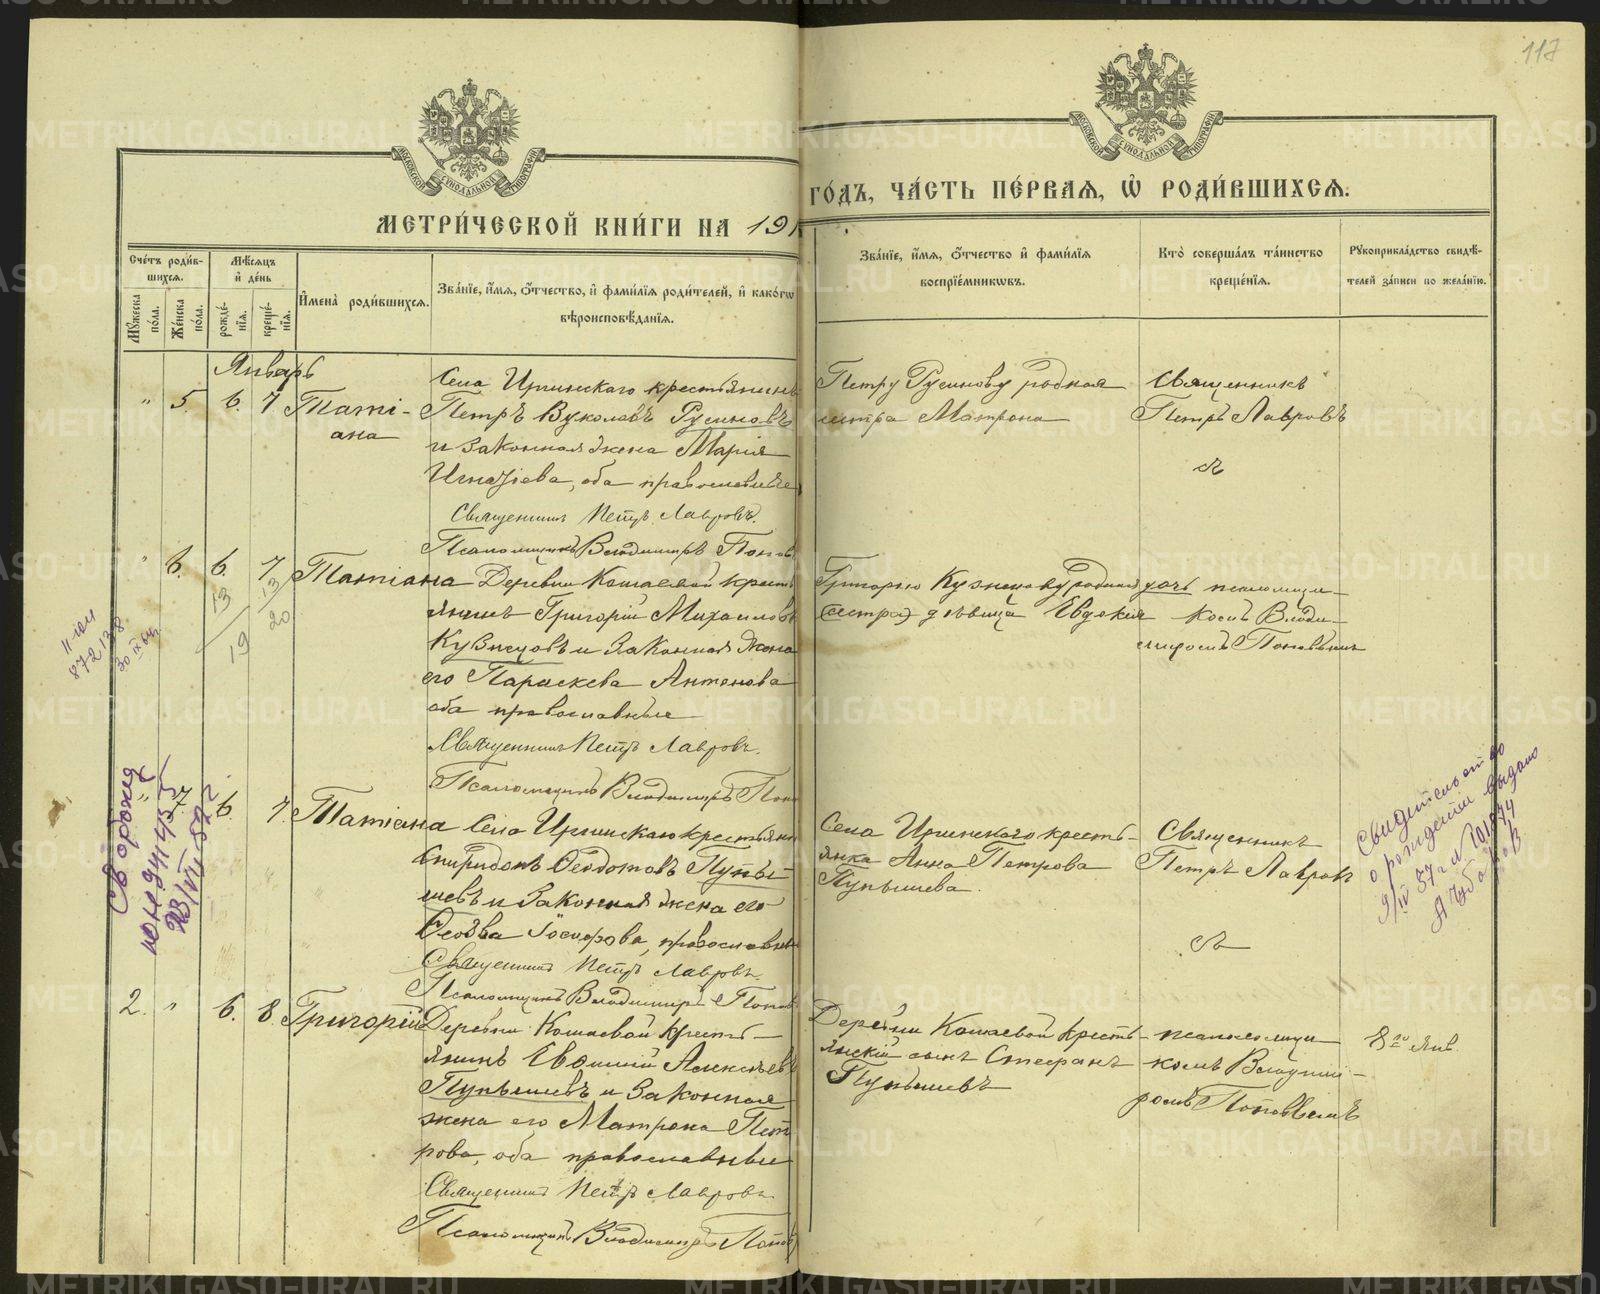 117
МОСКОВСКОЙ СѴНОДАЛЬНОЙ ТИПОГРАФІИ
МОСКОВСКОЙ СѴНОДАЛЬНОЙ ТИПОГРАФІИ
МЕТРИ́ЧЕСКОЙ КНИ́ГИ НА 191
ГО́ДЪ, ЧА́СТЬ ПЕ́РВАЯ, Ѡ҆ РОДИ́ВШИХСЯ.
Сче́тъ роди́в-
шихся.
Мѣ́сяцъ
и҆ де́нь
Мꙋ́жеска по́ла.
Же́нска по́ла.
рожде́-
нїя.
креще́-
нїя.
И҆мена̀ роди́вшихся.
Зва́нїе, и҆́мя, ѻ҆́тчество, и҆ фами́лїя роди́телей, и҆ како́гѡ
вѣроисповѣ́данїя.
Зва́нїе, и҆́мя, ѻ҆́тчество и҆ фами́лїя
воспрїе́мниковъ.
Кто̀ соверша́лъ та́инство
креще́нїя.
Рꙋкоприкла́дство свидѣ́-
телей за́писи по жела́нїю.
Январь
" 5. 6. 7 Тати-
ана
Села Иргинскаго крестьянинъ
Петръ Вуколовъ Русиновъ
и законная жена Марія
Игнатіева, оба православные
Священникъ Петръ Лавровъ.
Псаломщикъ Владимиръ Попов
Петру Русинову родная
сестра Матрона
Священникъ
Петръ Лавровъ
" 6. 6. 7 Татіана
13 13
19 20
Деревни Кошаевой кресть
янинъ Григорій Михаиловъ
Кузнецовъ и законная жена
его Параскева Антонова
оба православные
Священникъ Петръ Лавровъ.
Псаломщикъ Владимиръ Попо
Григорію Кузнецову родная дочь
(сестра) дѣвица Евдокия
псаломщи-
комъ Влади-
миромъ Поповымъ
" 7. 6. 7. Татіана
Села Иргинскаго крестьяни
Спиридонъ Ѳеодотовъ Пупы-
шевъ и законная жена его
православн
Священникъ Петръ Лавровъ.
Псаломщикъ Владимиръ Попов
Села Иргинскаго кресть-
янка Анна Петрова
Пупышева.
Священникъ
Петръ Лавровъ
2. " 6. 8. Григорій
Деревни Кошаевой кресть-
янинъ Евфимій Алексѣевъ
Пупышевъ и законная
жена его Матрона Пет
рова, оба православные
Священникъ Петръ Лавровъ.
Псаломщикъ Владимиръ Попов
Деревни Кошаевой кресть-
янскій сынъ Стефанъ
Пупышевъ
псаломщи
комъ Владими-
ромъ Поповымъ
8го янв.
Св о рожд
23/VII 52 г.
Свидетельство
о рождении выдано
9/IV 57 г. №
METRIKI.GASO-URAL.RU